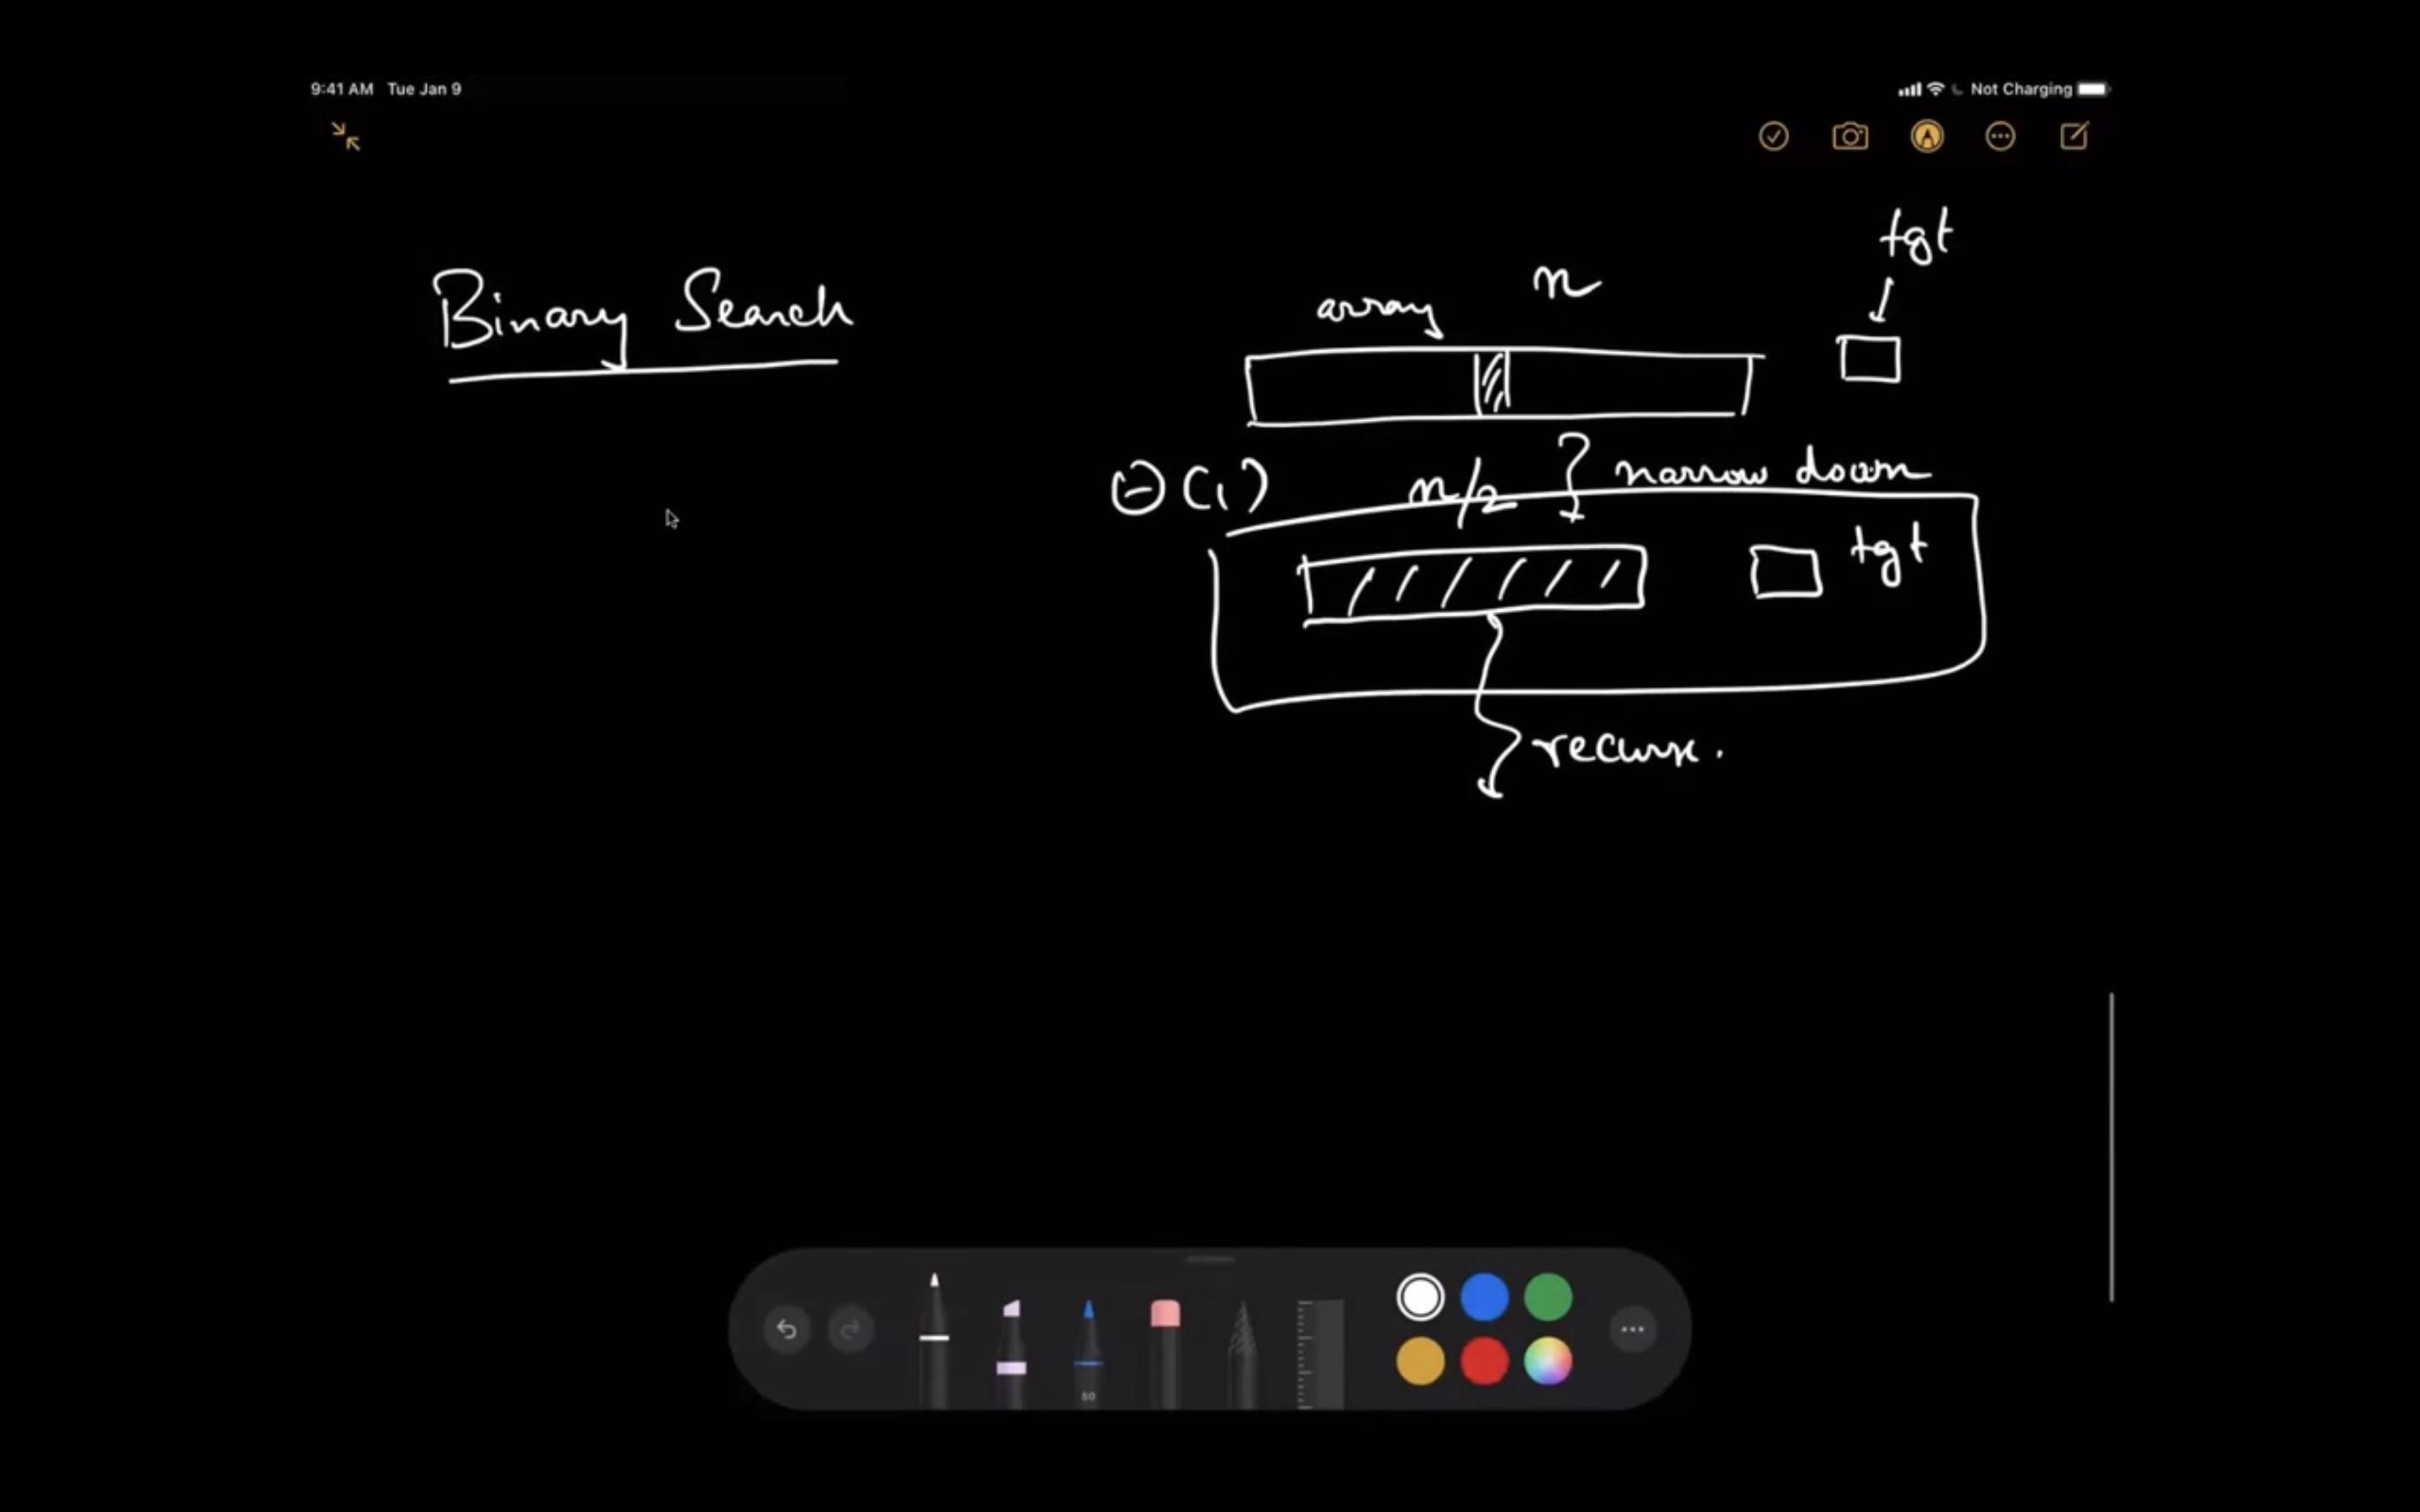 9:41 AM Tue Jan 9
Not Charging
tgt
Binary Search
array n
Θ(1) n/2 narrow down
tgt
recurse.
50